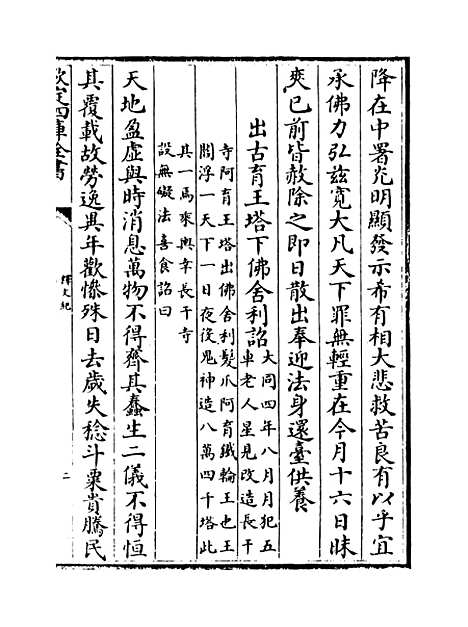 降在中署光明顯發示希有相大悲救苦良有以乎宜
承佛力弘兹寛大凡天下罪無輕重在今月十六日昧
爽已前皆赦除之即日散出奉迎法身還臺供養
出古育王塔下佛舍利詔
大同四年八月月犯五
車老人星見改造長干
寺阿育王塔出佛舍利髮爪阿育鐵輪王也王
閻浮一天下一日夜役鬼神造八萬四千塔此
其一焉乘輿幸長干寺
設無礙法喜食詔曰
天地盈虛與時消息萬物不得齊其蠢生二儀不得恒
其覆載故勞逸異年歡慘殊日去歲失稔斗粟貴騰民
欽定四庫全書
釋文紀
二